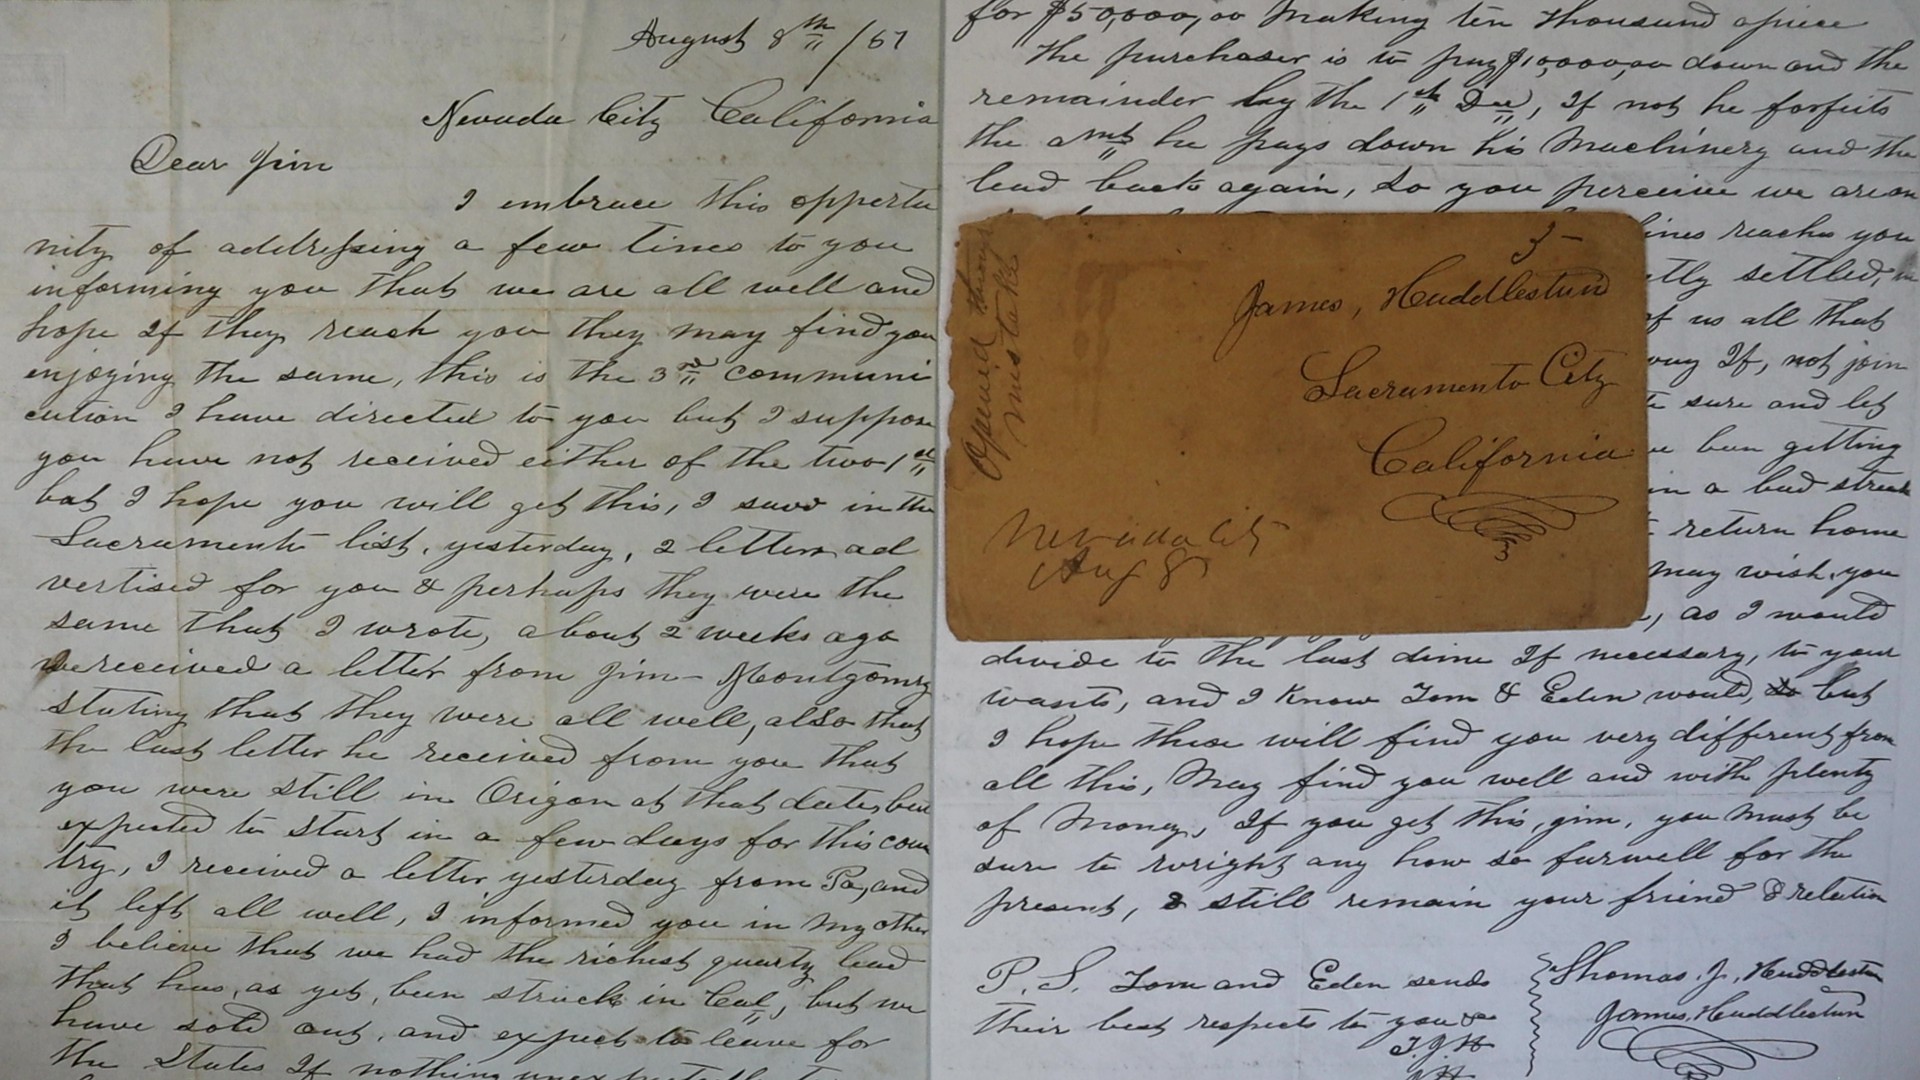 August 8th /57
Nevada City California
Dear Jim
I embrace this oppertu
nity of addressing a few lines to you
informing you that we are all well and
hope If they reach you they may find you
enjoying the same, this is the 3rd communi
cation I have directed to you but I suppose
you have not received either of the two 1st
but I hope you will get this, I saw in the
Sacramento list, yesterday, 2 letters ad
vertised for you & perhaps they were the
same that I wrote, about 2 weeks ago
we received a letter from Jim Montgomry
stating that they were all well, also that
the last letter he received from you that
you were still in Origon at that date, but
expected to start in a few days for this coun
try, I received a letter yesterday from Pa, and
it left all well, I informed you in my other
I believe that we had the richest quartz lead
that has, as yet, been struck in Cal, but we
have sold out, and expect to leave for
the States If nothing
for $50,000,00 Making ten thousand apiece
the purchaser is to pay $10,000,00 down and the
remainder by the 1st Dec, If not he forfeits
the amt he pays down his Machinery and the
lead back again, So you perceive we are on
lines reache you
settled,
of us all that
If, not join
sure and let
been getting
in a bad streak
return home
may wish, you
, as I would
divide to the last dime If necessary, to your
wants, and I know Tom & Eden would, but
I hope these will find you very different from
all this, May find you well and with plenty
of Money, If you get this, jim, you must be
sure to wright any how so farwell for the
present, & still remain your friend & relation
P.S. Tom and Eden sends
their best respects to you
T.J.H
Thomas, J, Huddlestun
James, Huddlestun
Opened through
mistake
James, Huddlestun
Sacramento City
California
Nevada City
Aug 8